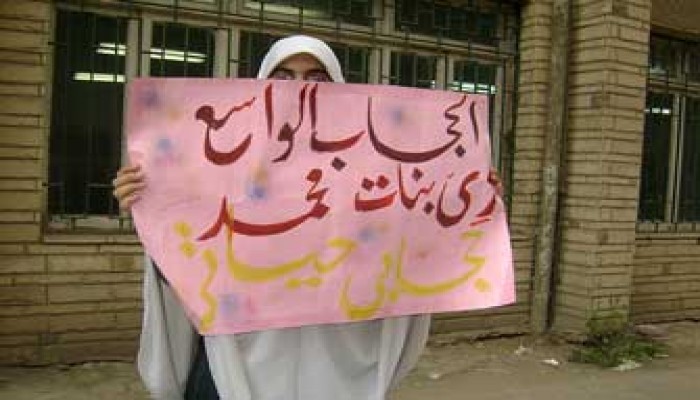 الحجاب الواسع
زىَ بنات محمد
حجابي حياتي